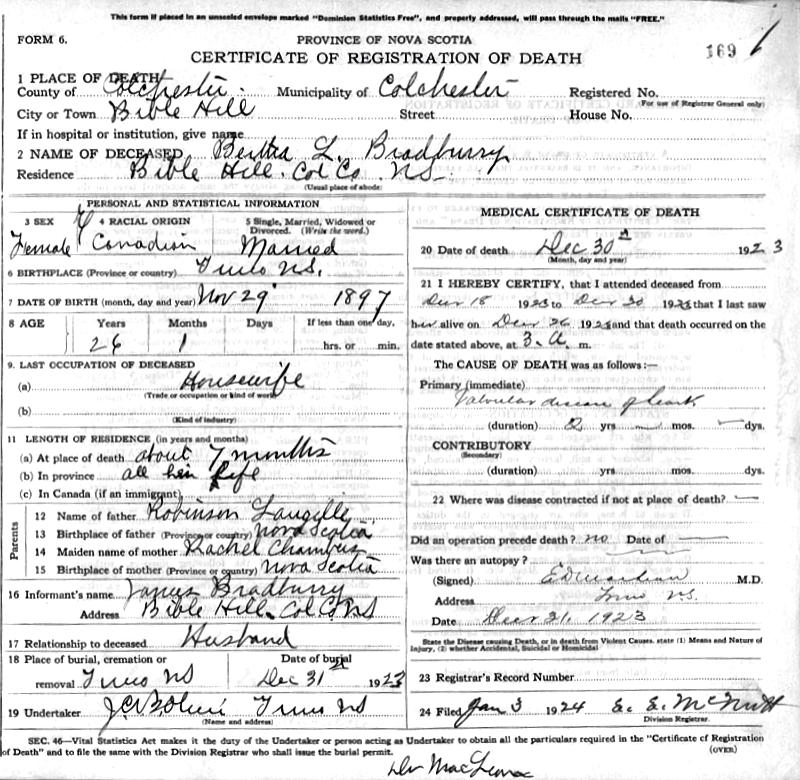 This form if placed in an unsealed envelope marked "Dominion Statistics Free", and properly addressed, will pass through the mails "FREE."
FORM 6.
PROVINCE OF NOVA SCOTIA
CERTIFICATE OF REGISTRATION OF DEATH
169
1 PLACE OF DEATH
County of Colchester Municipality of Colchester Registered No.
(For use of Registrar General only)
City or Town Bible Hill Street House No.
If in hospital or institution, give name
2 NAME OF DECEASED Bertha L. Bradburry
Residence Bible Hill. Col Co. NS
(Usual place of abode)
PERSONAL AND STATISTICAL INFORMATION
3 SEX 4 RACIAL ORIGIN 5 Single, Married, Widowed or Divorced. (Write the word.)
Female Canadian Married
6 BIRTHPLACE (Province or country) Truro NS.
7 DATE OF BIRTH (month, day and year) Nov 29 1897
8 AGE Years Months Days If less than one day,
26 1 hrs. or min.
9. LAST OCCUPATION OF DECEASED
(a) Housewife
(Trade or occupation or kind of work)
(b)
(Kind of industry)
11 LENGTH OF RESIDENCE (in years and months)
(a) At place of death about 7 months
(b) In province all her life
(c) In Canada (if an immigrant)
Parents
12 Name of father Robinson Langille
13 Birthplace of father (Province or country) Nova Scotia
14 Maiden name of mother Rachel Chambers
15 Birthplace of mother (Province or country) Nova Scotia
16 Informant's name James Bradburry
Address Bible Hill. Col Co NS
17 Relationship to deceased Husband
18 Place of burial, cremation or Date of burial
removal Truro NS Dec 31st 1923
19 Undertaker Truro NS
(Name and address)
MEDICAL CERTIFICATE OF DEATH
20 Date of death Dec 30th 1923
(Month, day and year)
21 I HEREBY CERTIFY, that I attended deceased from
Decr 18 1923 to Decr 30 1923 that I last saw
her alive on Decr 26 1923 and that death occurred on
date stated above, at 3. a. m.
The CAUSE OF DEATH was as follows :—
Primary (immediate)
Valvular disease of heart
(duration) 2 yrs — mos. — dys.
CONTRIBUTORY
(Secondary)
(duration) yrs. mos. dys.
22 Where was disease contracted if not at place of death? —
Did an operation precede death? no Date of —
Was there an autopsy?
(Signed) M.D.
Address Truro NS.
Date Decr 31. 1923
State the Disease causing Death, or in death from Violent Causes. state (1) Means and Nature of
Injury, (2) whether Accidental, Suicidal or Homicidal
23 Registrar's Record Number
24 Filed Jan 3 1924 E. E. McNutt
Division Registrar.
SEC. 46—Vital Statistics Act makes it the duty of the Undertaker or person acting as Undertaker to obtain all the particulars required in the "Certificate of Registration
of Death" and to file the same with the Division Registrar who shall issue the burial permit. (OVER)